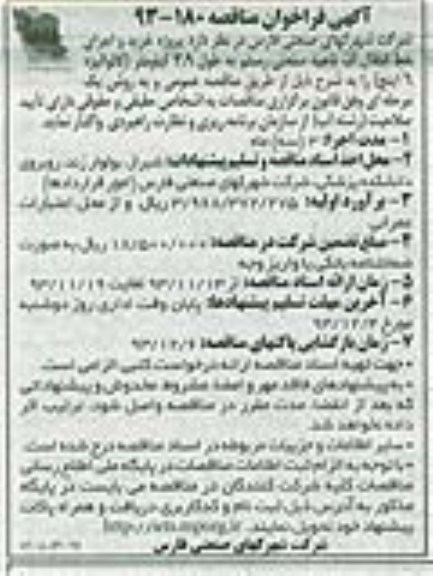 آگهی فراخوان مناقصه ۱۸۰-۹۳
شرکت شهرکهای صنعتی فارس در نظر دارد پروژه خرید و اجرای
خط انتقال آب ناحیه صنعتی رستم به طول ۳.۹ کیلومتر (گالوانیزه
۶ اینچ) را به شرح ذیل از طریق مناقصه عمومی و به روش یک
مرحله ای وفق قانون برگزاری مناقصات به اشخاص حقیقی و حقوقی دارای تأیید
صلاحیت (رشته آب) از سازمان برنامه ریزی و نظارت راهبردی واگذار نماید.
۱- مدت اجرا: ۳ (سه) ماه
۲- محل اخذ اسناد مناقصه و تسلیم پیشنهادات: شیراز، بولوار زند، روبروی
دانشکده پزشکی، شرکت شهرکهای صنعتی فارس (امور قراردادها)
۳- برآورد اولیه: ۳/۹۸۸/۳۷۲/۲۷۵ ریال و از محل اعتبارات
عمرانی
۴- مبلغ تضمین شرکت در مناقصه: ریال به صورت
ضمانتنامه بانکی یا واریز وجه
۵- زمان ارائه اسناد مناقصه: از ۹۳/۱۱/۱۳ لغایت ۹۳/۱۱/۱۹
۶- آخرین مهلت تسلیم پیشنهادها: پایان وقت اداری روز دوشنبه
مورخ ۹۳/۱۲/۴
۷- زمان بازگشایی پاکتهای مناقصه: ۹۳/۱۲/۶
• جهت تهیه اسناد مناقصه ارائه درخواست کتبی الزامی است.
• به پیشنهادهای فاقد مهر و امضا، مشروط، مخدوش و پیشنهاداتی
که بعد از انقضا، مدت مقرر در مناقصه واصل شود، ترتیب اثر
داده نخواهد شد.
• سایر اطلاعات و جزییات مربوطه در اسناد مناقصه درج شده است.
• با توجه به الزام ثبت اطلاعات مناقصات در پایگاه ملی اطلاع رسانی
مناقصات کلیه شرکت کنندگان در مناقصه می بایست در پایگاه
مذکور به آدرس ذیل ثبت نام و کد کاربری دریافت و همراه پاکات
پیشنهاد خود تحویل نمایند. http://iets.mporg.ir
شرکت شهرکهای صنعتی فارس